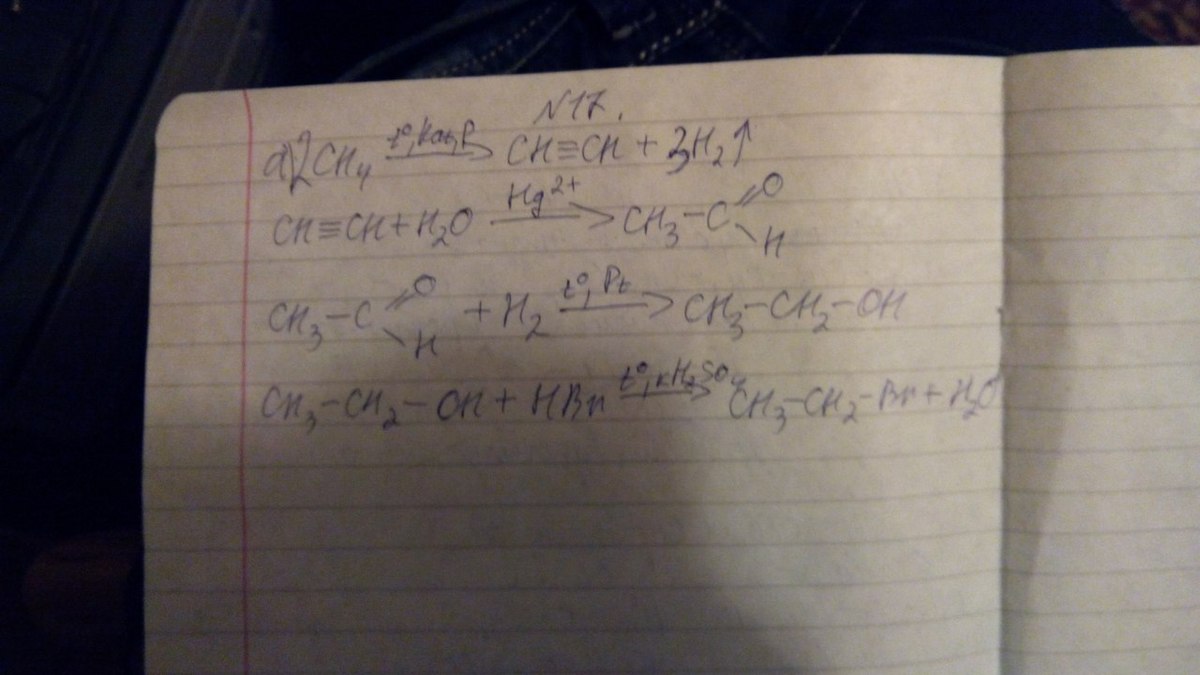 N17.
а) 2CH₄ —t°, kat, P→ CH≡CH + 3H₂↑
CH≡CH + H₂O —Hg²⁺→ CH₃–C(=O)–H
CH₃–C(=O)–H + H₂ —t°, Pt→ CH₃–CH₂–OH
CH₃–CH₂–OH + HBr —t°, кH₂SO₄→ CH₃–CH₂–Br + H₂O